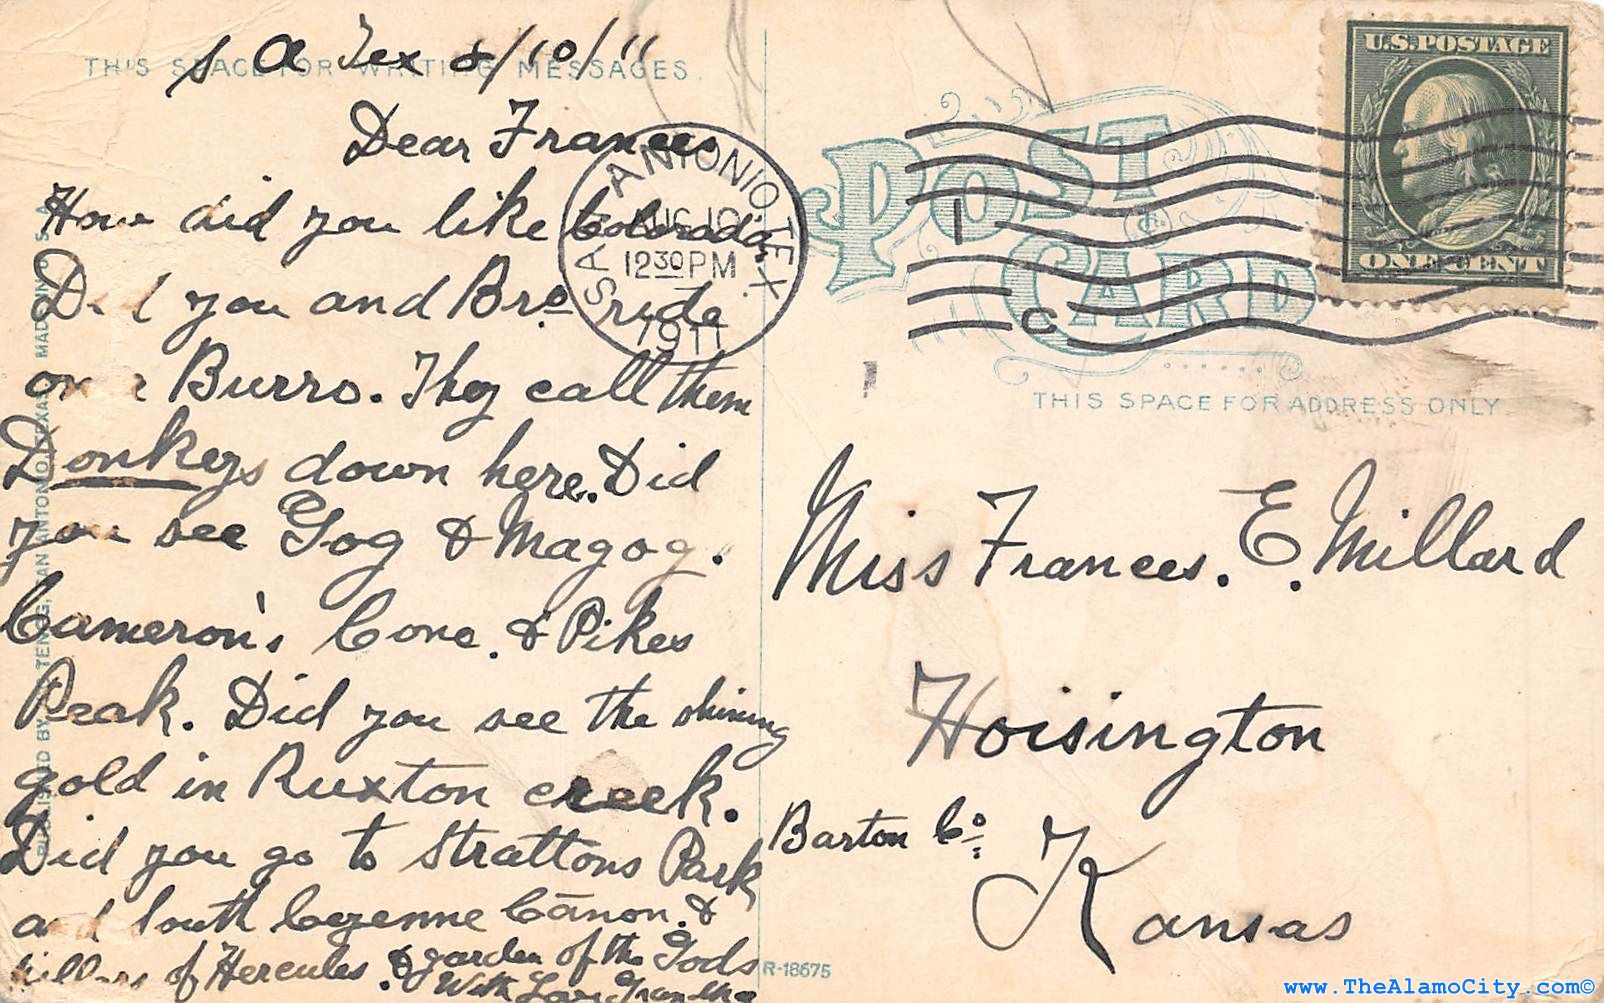 THIS SPACE FOR WRITING MESSAGES.
S A Tex 8/10/11
Dear Frances
How did you like Colorado.
Did you and Bro ride
on a Burro. They call them
Donkeys down here. Did
you see Gog & Magog.
Cameron's Cone. & Pikes
Peak. Did you see the shining
gold in Ruxton creek.
Did you go to Strattons Park
and South Cyenne Cānon. &
Pillars of Hercules. & garden of the Gods
With Love
SAN ANTONIO, TEX.
AUG 10
12 30 PM
1911
1 C
U.S. POSTAGE
ONE CENT
POST CARD
THIS SPACE FOR ADDRESS ONLY.
Miss Frances. E. Millard
Hoisington
Barton Co.
Kansas
R-18675
MADE IN U.S.A.
SAN ANTONIO, TEXAS.
PUBLISHED BY
www.TheAlamoCity.com©